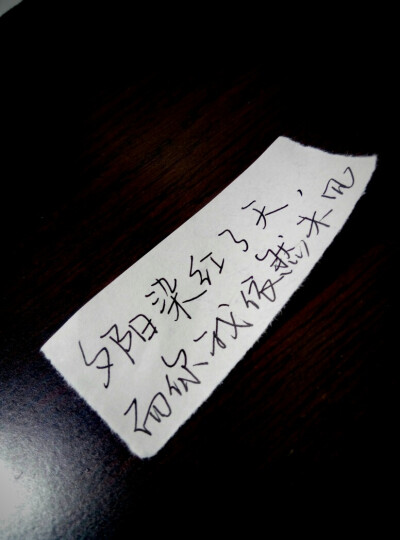 夕阳染红了天，
而你我依然未见